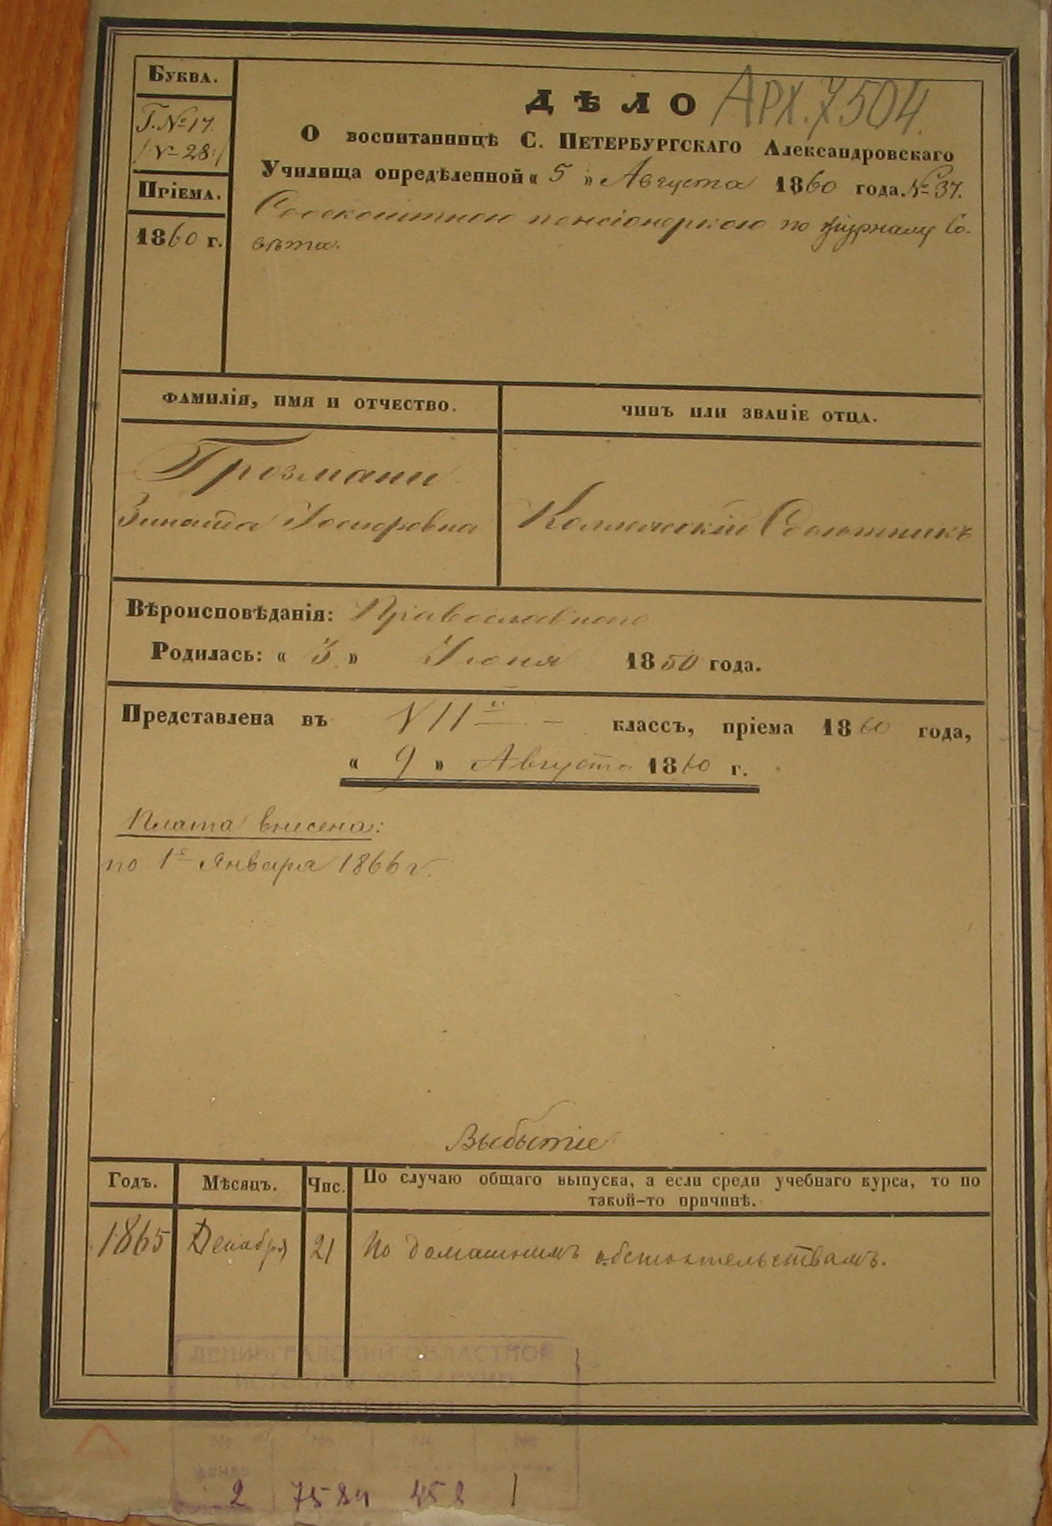 Буква.
Г. № 17.
(№ 28)
Пріема.
1860 г.
Арх. 7504.
ДѢЛО
О воспитанницѣ С. Петербургскаго Александровскаго
Училища опредѣленной « 5 » Августа 1860 года. № 37.
Своекоштною пенсіонеркою по журналу Со-
вѣта.
фамилія, имя и отчество.
чинъ или званіе отца.
Грозманн
Зинаида Іосифовна
Коллежскій Совѣтникъ
Вѣроисповѣданія: Православнаго
Родилась: « 3 » Іюня 1850 года.
Представлена въ VII классъ, пріема 1860 года,
« 9 » Августа 1860 г.
Плата внесена:
по 1е Января 1866 г.
Выбытіе
Годъ.
Мѣсяцъ.
Чис.
По случаю общаго выпуска, а если среди учебнаго курса, то по
такой-то причинѣ.
1865
Декабря
21
По домашнимъ обстоятельствамъ.
ЛЕНИНГРАДСКИЙ ОБЛАСТНОЙ
ИСТОРИЧЕСКИЙ АРХИВ
2
458
1